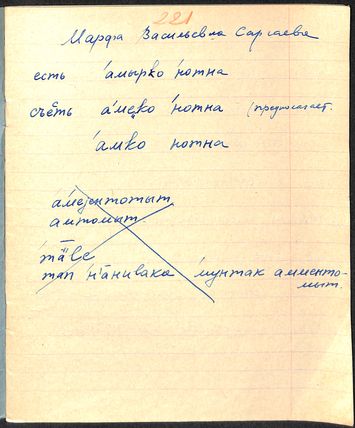 221
Марфа Васильевна Саргаева
есть ́амырко ́нотна
съесть а́меко ́нотна (предполагает.
́амко нотна
а́мејентотыт
амтомыт
та̄ве
тап н'а̄нивака ́мунтак амменто-
мыт.